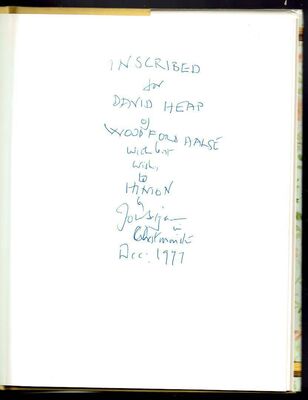 INSCRIBED
for
DAVID HEAP
of
WOODFORD HALSE
with best
wishes
to
HINTON
by
Dec: 1977